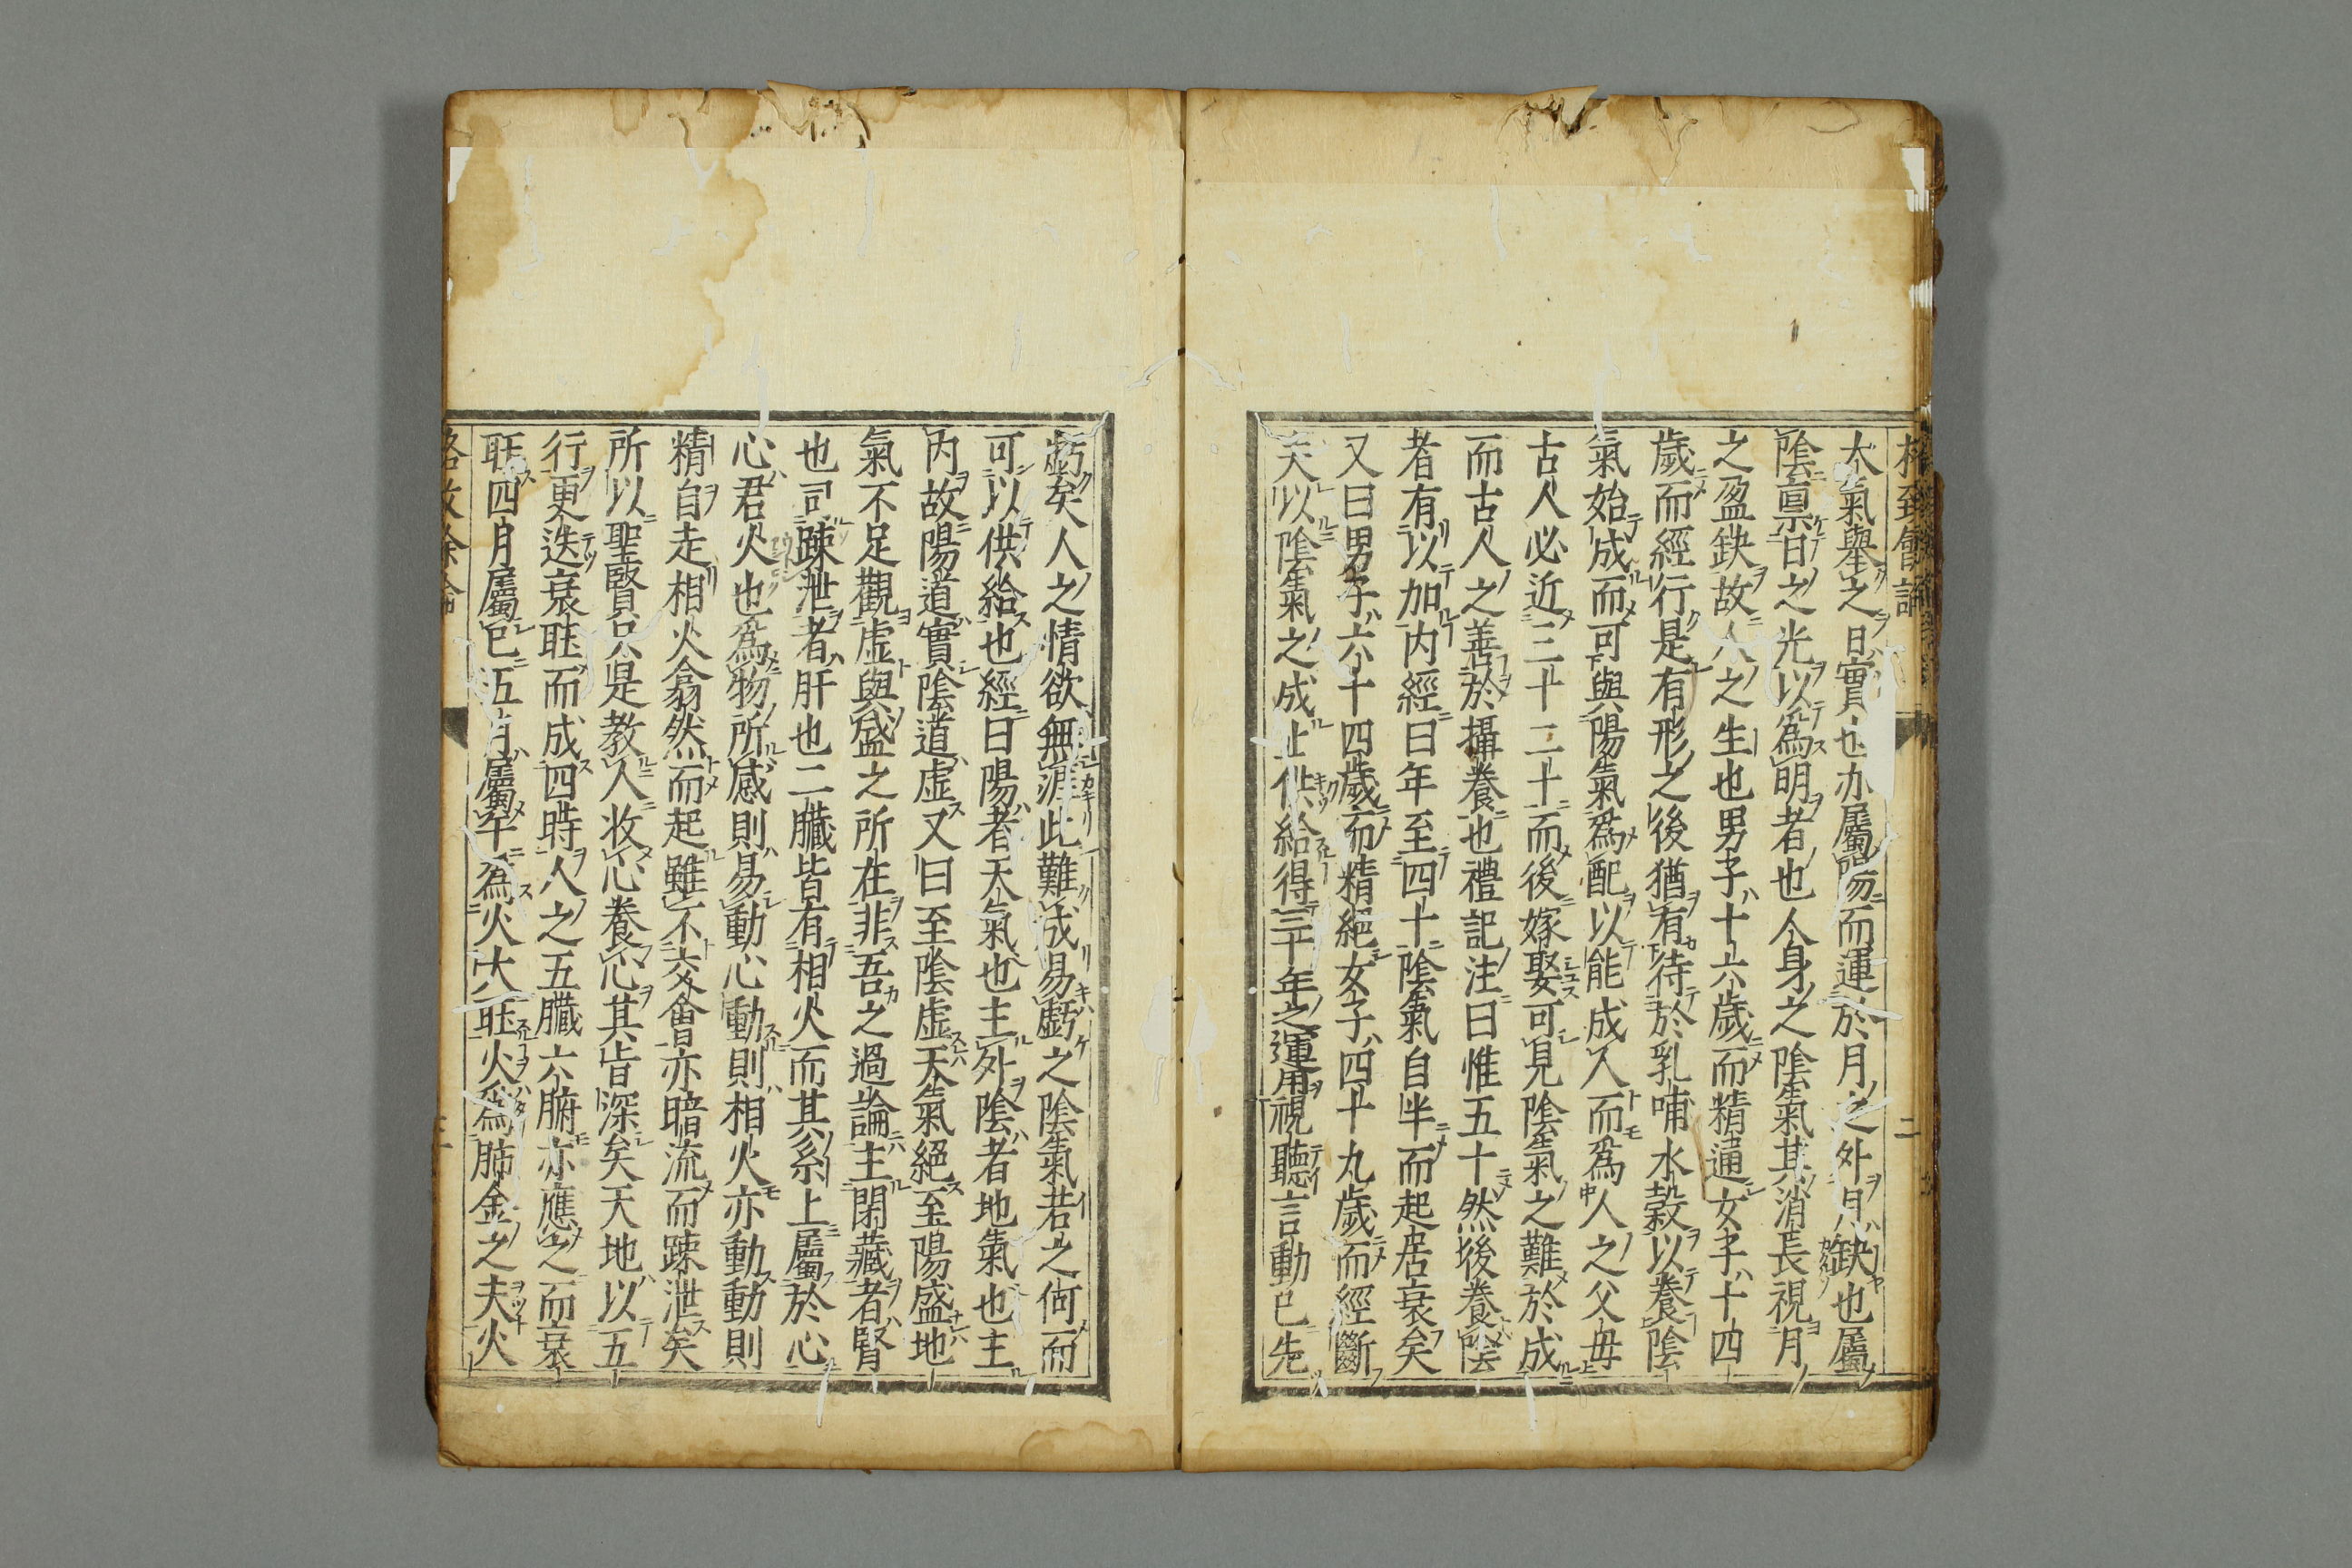 格致餘論 二
大氣舉之日實也亦屬陽而運於月之外月缺也屬
陰稟日之光以爲明者也人身之陰氣其消長視月
之盈缺故人之生也男子十六歲而精通女子十四
歲而經行是有形之後猶有待於乳哺水穀以養陰
氣始成而可與陽氣爲配以能成人而爲人之父母
古人必近三十二十而後嫁娶可見陰氣之難於成
而古人之善於攝養也禮記注曰惟五十然後養陰
者有以加内經曰年至四十陰氣自半而起居衰矣
又曰男子六十四歲而精絕女子四十九歲而經斷
夫以陰氣之成止供給得三十年之運用視聽言動已先
虧矣人之情欲無涯此難成易虧之陰氣若之何而
可以供給也經曰陽者天氣也主外陰者地氣也主
内故陽道實陰道虚又曰至陰虚天氣絕至陽盛地
氣不足觀虚與盛之所在非吾之過論主閉藏者腎
也司疎泄者肝也二臟皆有相火而其系上屬於心
心君火也爲物所感則易動心動則相火亦動動則
精自走相火翕然而起雖不交會亦暗流而疎泄矣
所以聖賢只是教人收心養心其旨深矣天地以五
行更迭衰旺而成四時人之五臟六腑亦應之而衰
旺四月屬巳五月屬午爲火大旺火爲肺金之夫火
格致餘論